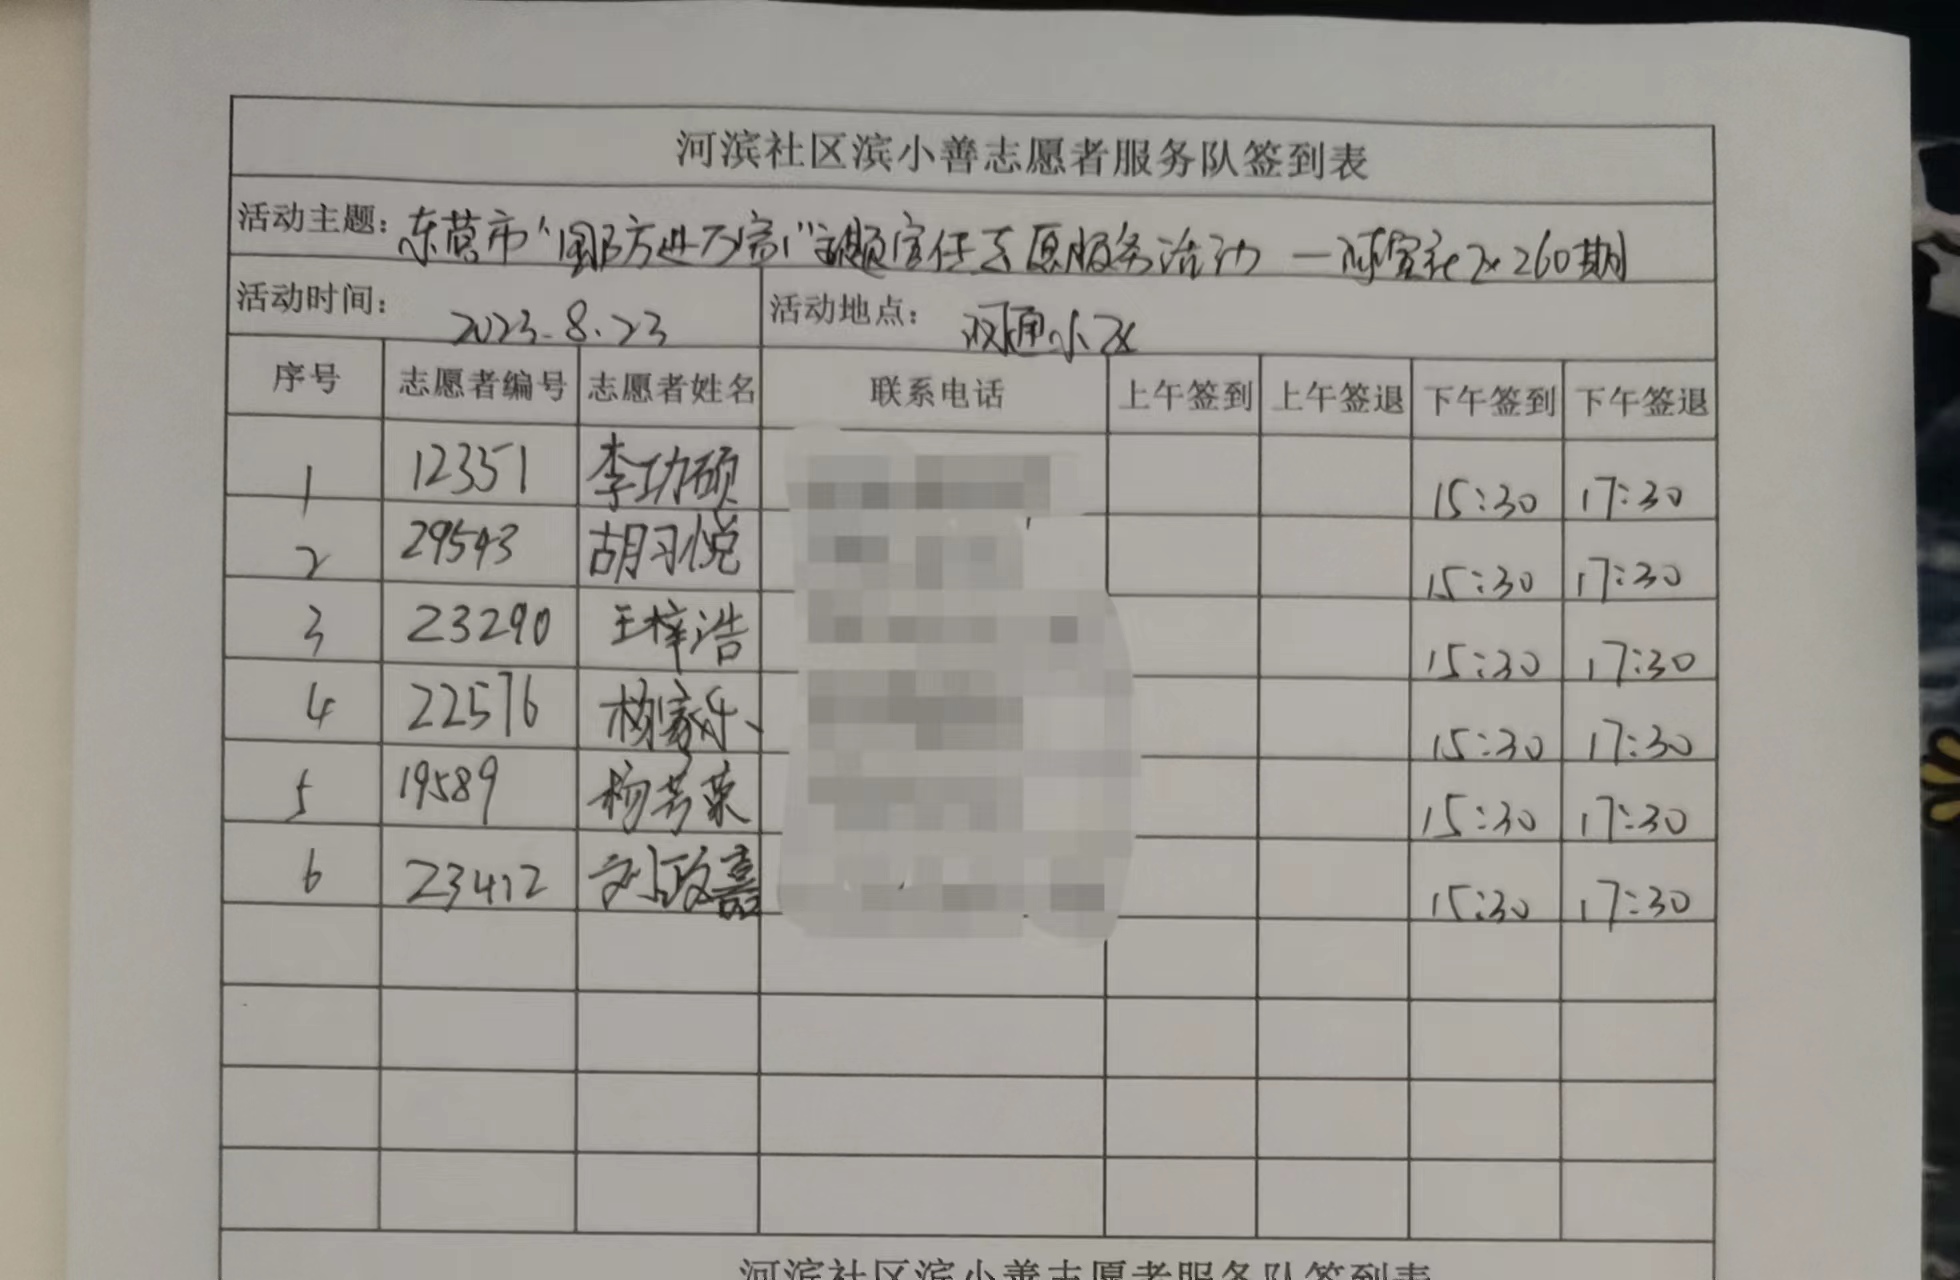 河滨社区滨小善志愿者服务队签到表
活动主题：东营市“国防进万家”主题宣传志愿服务活动 — 260期
活动时间： 2023.8.23 活动地点： 双通小区
序号 志愿者编号 志愿者姓名 联系电话 上午签到 上午签退 下午签到 下午签退
1 12351 李功硕 15:30 17:30
2 29543 胡习悦 15:30 17:30
3 23290 王梓浩 15:30 17:30
4 22576 杨家乐 15:30 17:30
5 19589 杨芳荣 15:30 17:30
6 23412 刘政嘉 15:30 17:30
河滨社区滨小善志愿者服务队签到表